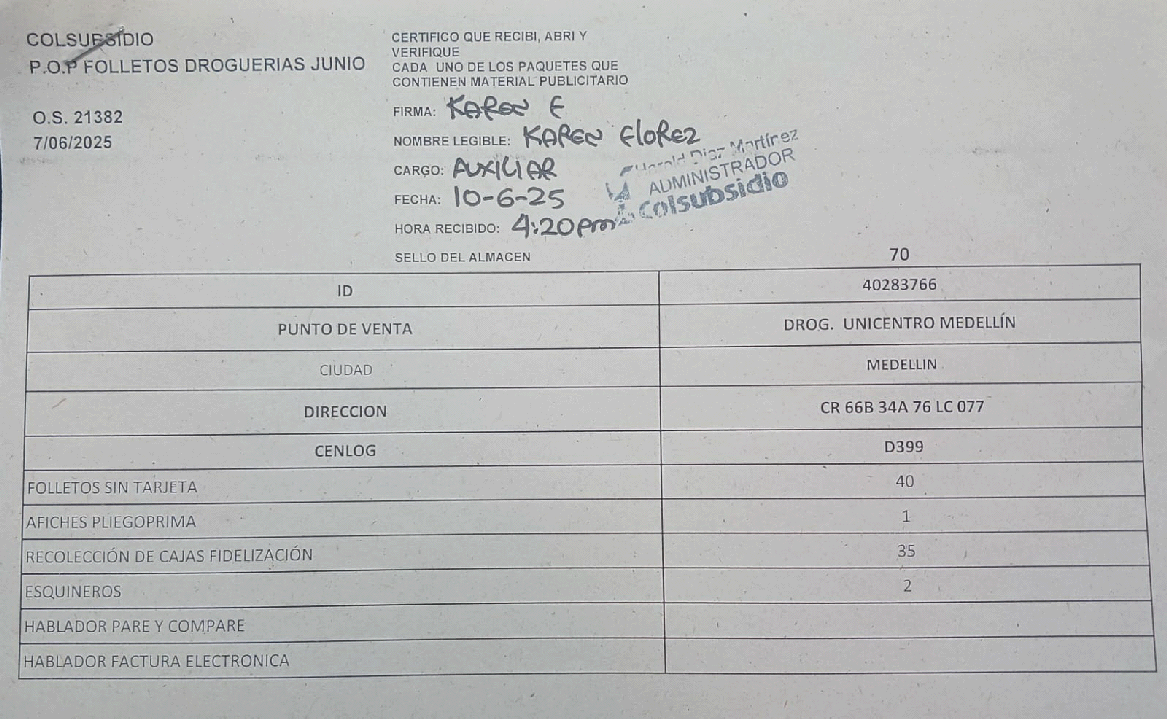 COLSUBSIDIO
P.O.P FOLLETOS DROGUERIAS JUNIO
O.S. 21382
7/06/2025
CERTIFICO QUE RECIBI, ABRI Y
VERIFIQUE
CADA UNO DE LOS PAQUETES QUE
CONTIENEN MATERIAL PUBLICITARIO
FIRMA: KAREN F
NOMBRE LEGIBLE: KAREN FloREZ
CARGO: AUXILIAR
FECHA: 10-6-25
HORA RECIBIDO: 4:20pm
Harold Diaz Martínez
ADMINISTRADOR
colsubsidio
SELLO DEL ALMACEN
70
ID 40283766
PUNTO DE VENTA DROG. UNICENTRO MEDELLÍN
CIUDAD MEDELLIN
DIRECCION CR 66B 34A 76 LC 077
CENLOG D399
FOLLETOS SIN TARJETA 40
AFICHES PLIEGOPRIMA 1
RECOLECCIÓN DE CAJAS FIDELIZACIÓN 35
ESQUINEROS 2
HABLADOR PARE Y COMPARE
HABLADOR FACTURA ELECTRONICA